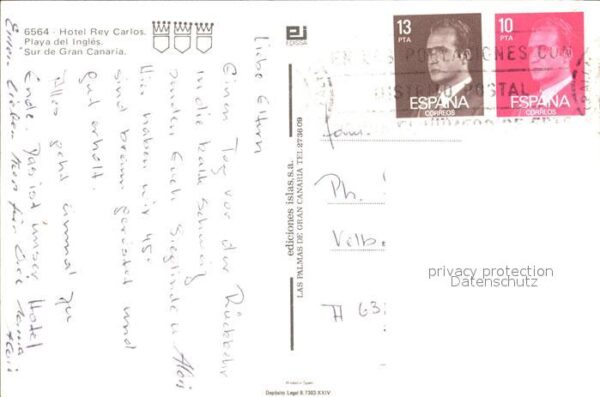 6564 - Hotel Rey Carlos.
Playa del Inglés.
Sur de Gran Canaria.
EDISSA
Liebe Eltern
Einen Tag vor der Rückkehr
in die kalte Schweiz
senden Euch Sieglinde u. Alois
Hier haben wir 45°
sind braun geröstet und
gut erholt.
Alles geht einmal zu
Ende. Das ist unser Hotel
Einen lieben für Euch
ediciones islas, s.a.
LAS PALMAS DE GRAN CANARIA TEL: 273609
Printed in Spain
Depósito Legal B. 7382-XXIV
13
PTA
ESPAÑA
CORREOS
10
PTA
ESPAÑA
CORREOS
CON
DISTRITO POSTAL
Fam.
Ph.
Velb
privacy protection
Datenschutz